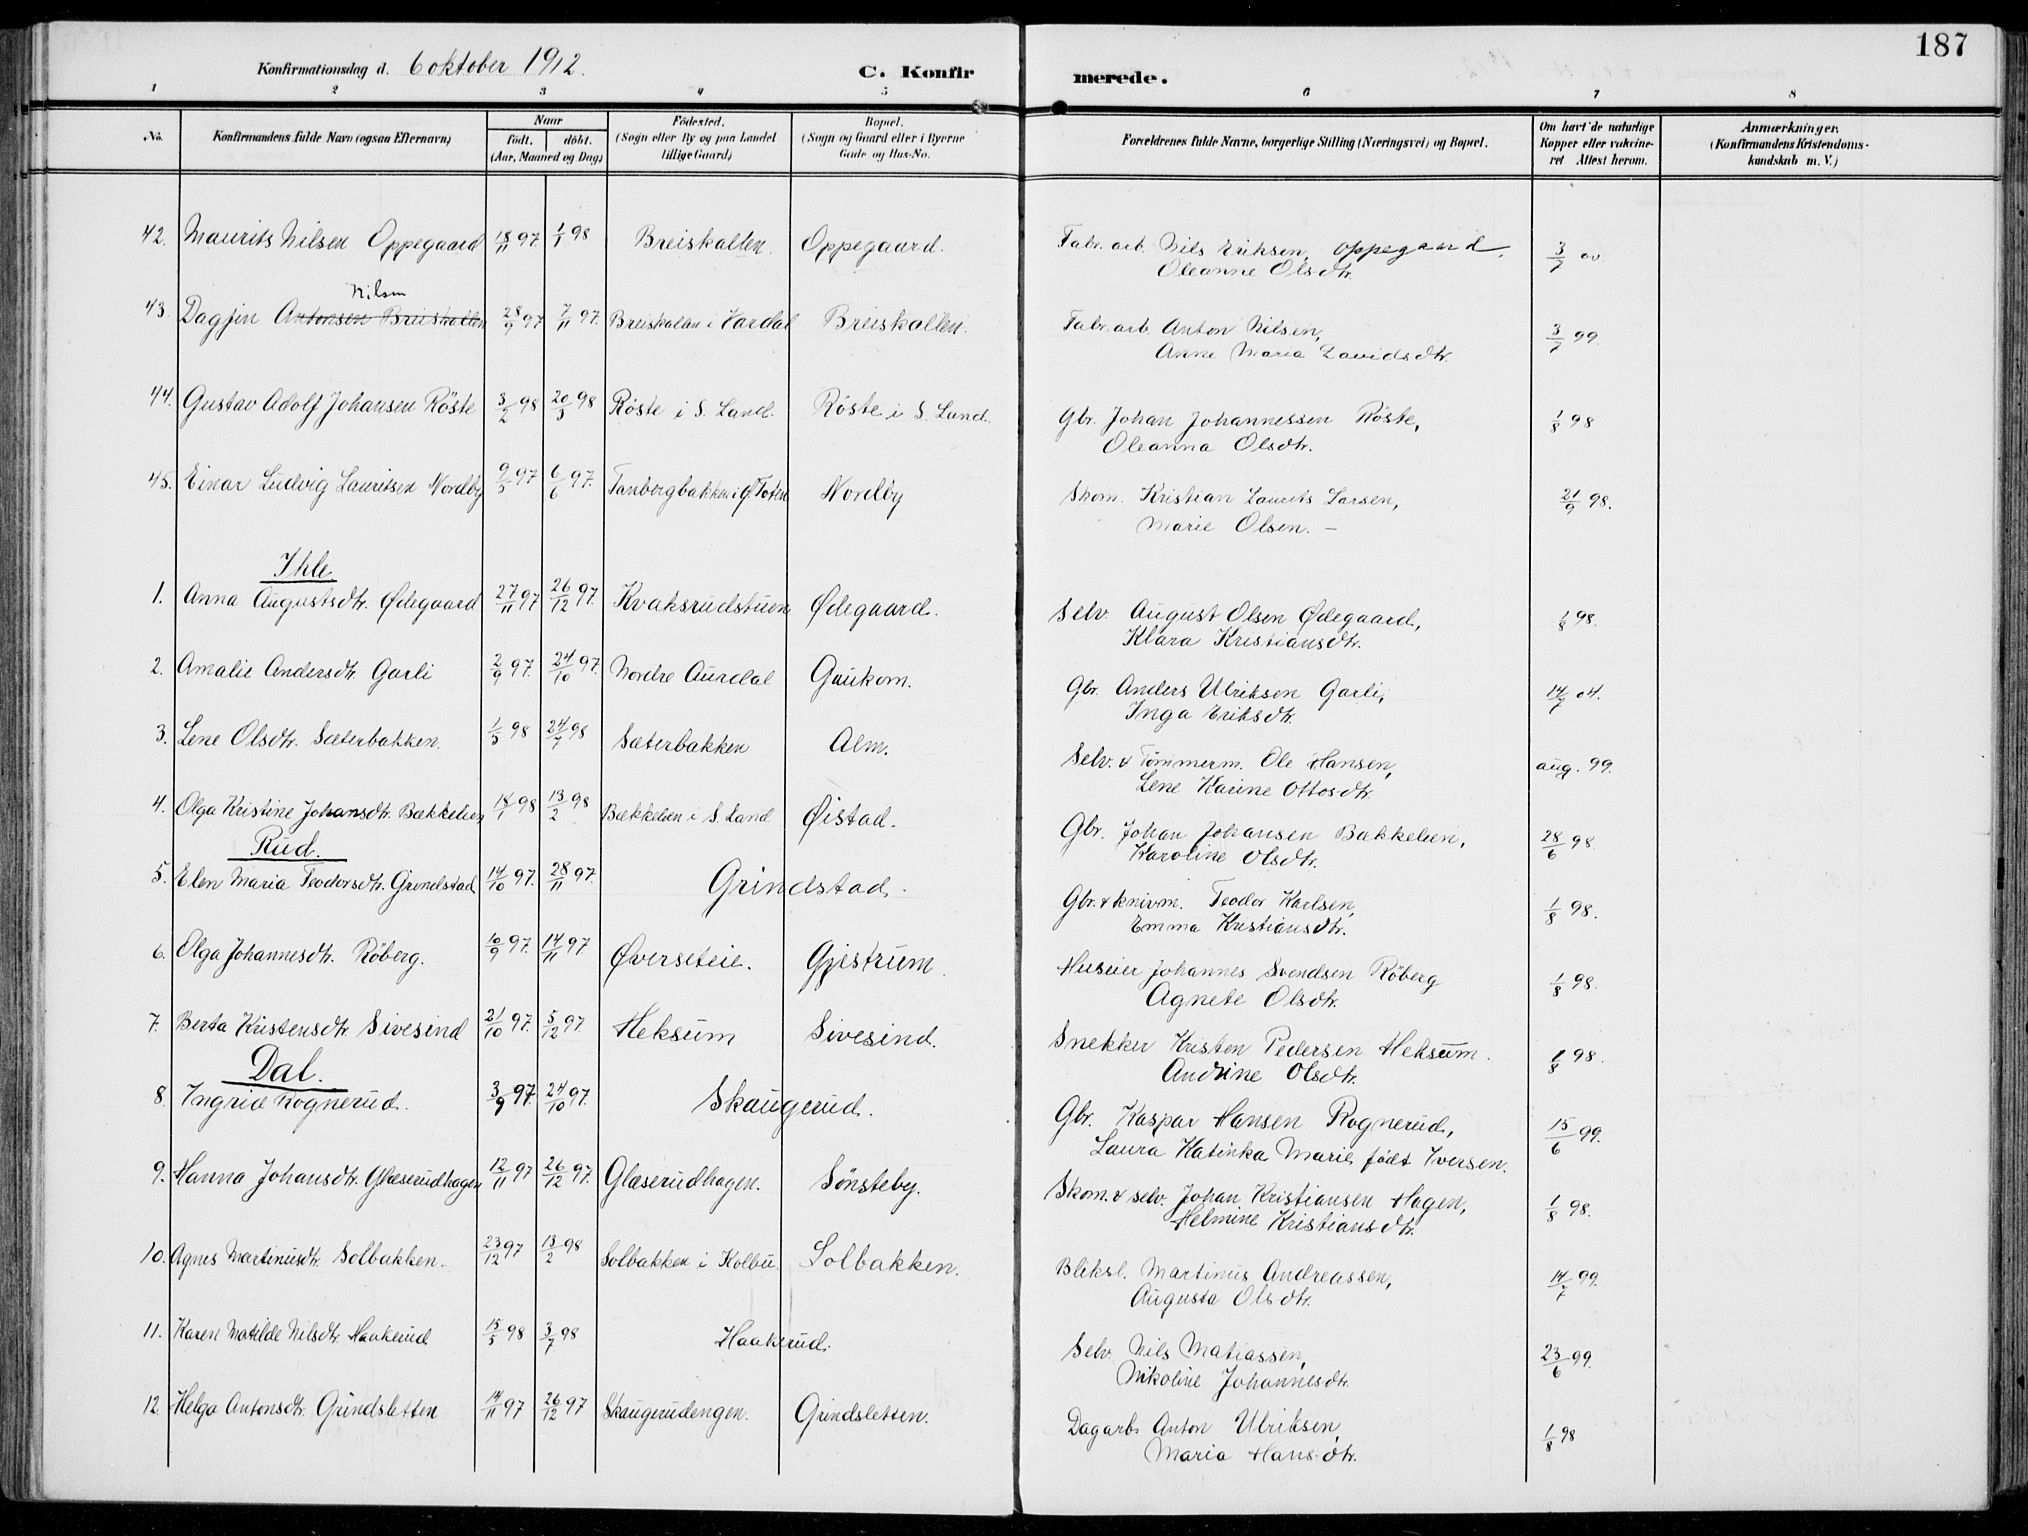 187
Konfirmationsdag d. 6 oktober 1912. C. Konfir merede.
1 2 3 4 5 6 7 8
No. Konfirmandens fulde Navn (ogsaa Efternavn) Naar født. døbt. (Aar, Maaned og Dag) Fødested. (Sogn eller By og paa Landet tillige Gaard) Bopæl. (Sogn og Gaard eller i Byerne Gade og Hus-No. Forældrenes fulde Navne, borgerlige Stilling (Næringsvei) og Bopæl. Om havt de naturlige Kopper eller vaccineret Attest herom. Anmærkninger. (Konfirmandens Kristendomskundskab m. V.)
42. Maurits Nilsen Oppegaard 18/11 97. 1/1 98 Breiskallen. Oppegaard. Fabr. arb. Nils Eriksen, Oppegaard, 3/7 00.
Oleanne Olsdtr.
Nilsen
43. Dagfin Antonsen Breiskallen 28/9 97 7/11 97. Breiskalen i Vardal Breiskallen. Fabr. arb. Anton Nilsen, 3/7 99.
Anne Maria Davidsdtr.
44. Gustav Adolf Johansen Röste 3/2 98 20/3 98 Röste i S. Land. Röste i S. Land. Gbr. Johan Johannessen Röste, 1/8 98
Oleanna Olsdtr.
45. Einar Ludvig Lauritsen Nordby 9/5 97 6/6 97. Tanbergbakken i Ø. Toten Nordby Skom. Kristian Laurits Larsen, 21/9 98.
Marie Olsen. –
Ihle
1. Anna Augustsdtr. Ødegaard 27/11 97 26/12 97. Kvaksrudstuen Ødegaard. Selv. August Olsen Ødegaard, 1/8 98.
Klara Kristiansdtr.
2. Amalie Andersdtr. Garli 2/9 97. 24/10 97. Nordre Aurdal Gaukom. Gbr. Anders Ulriksen Garli, 14/7 04.
Inga Eriksdtr.
3. Lene Olsdtr. Sæterbakken. 1/5 98 24/7 98 Sæterbakken Alm. Selv. & Tømmerm. Ole Hansen, aug. 99.
Lene Karine Ottosdtr.
4. Olga Kristine Johansdtr. Bækkelien 14/1 98 13/2 98 Bækkelien i S. Land Øistad. Gbr. Johan Johansen Bækkelien, 28/6 98.
Karoline Olsdtr.
Rud.
5. Elen Maria Teodorsdtr. Grindstad 14/10 97. 28/11 97. Grindstad. Gbr. & knivm. Teodor Karlsen, 1/8 98.
Emma Kristiansdtr.
6. Olga Johannesdtr. Röberg. 10/9 97. 14/11 97 Øverseteie. Gjestrum. Huseier Johannes Svendsen Röberg 1/8 98.
Agnete Olsdtr.
7. Berta Kristensdtr. Sivesind 21/10 97. 5/12 97 Heksum Sivesind. Snekker Kristen Pedersen Heksum. 1/8 98.
Andrine Olsdtr.
Dal.
8. Ingrid Rognerud. 3/9 97. 24/10 97. Skaugerud. Gbr. Kaspar Hansen Rognerud, 15/6 99.
Laura Katinka Marie født Iversen.
9. Hanna Johansdtr. Glæserudhagen 12/11 97 26/12 97. Glæserudhagen. Sønsteby. Skom. & selv. Johan Kristiansen Hagen, 1/8 98.
Helmine Kristiansdtr.
10. Agnes Martinusdtr. Solbakken. 23/12 97 13/2 98 Solbakken i Kolbu Solbakken. Bliksl. Martinus Andreassen, 14/7 99.
Augusta Olsdtr.
11. Karen Matilde Nilsdtr. Haakerud 15/5 98 3/7 98 Haakerud. Selv. Nils Matiassen, 23/6 99.
Nikoline Johannesdtr.
12. Helga Antonsdtr. Grindsletten 14/11 97 26/12 97 Skaugerudengen. Grindsletten. Dagarb. Anton Ulriksen, 1/8 98
Maria Hansdtr.